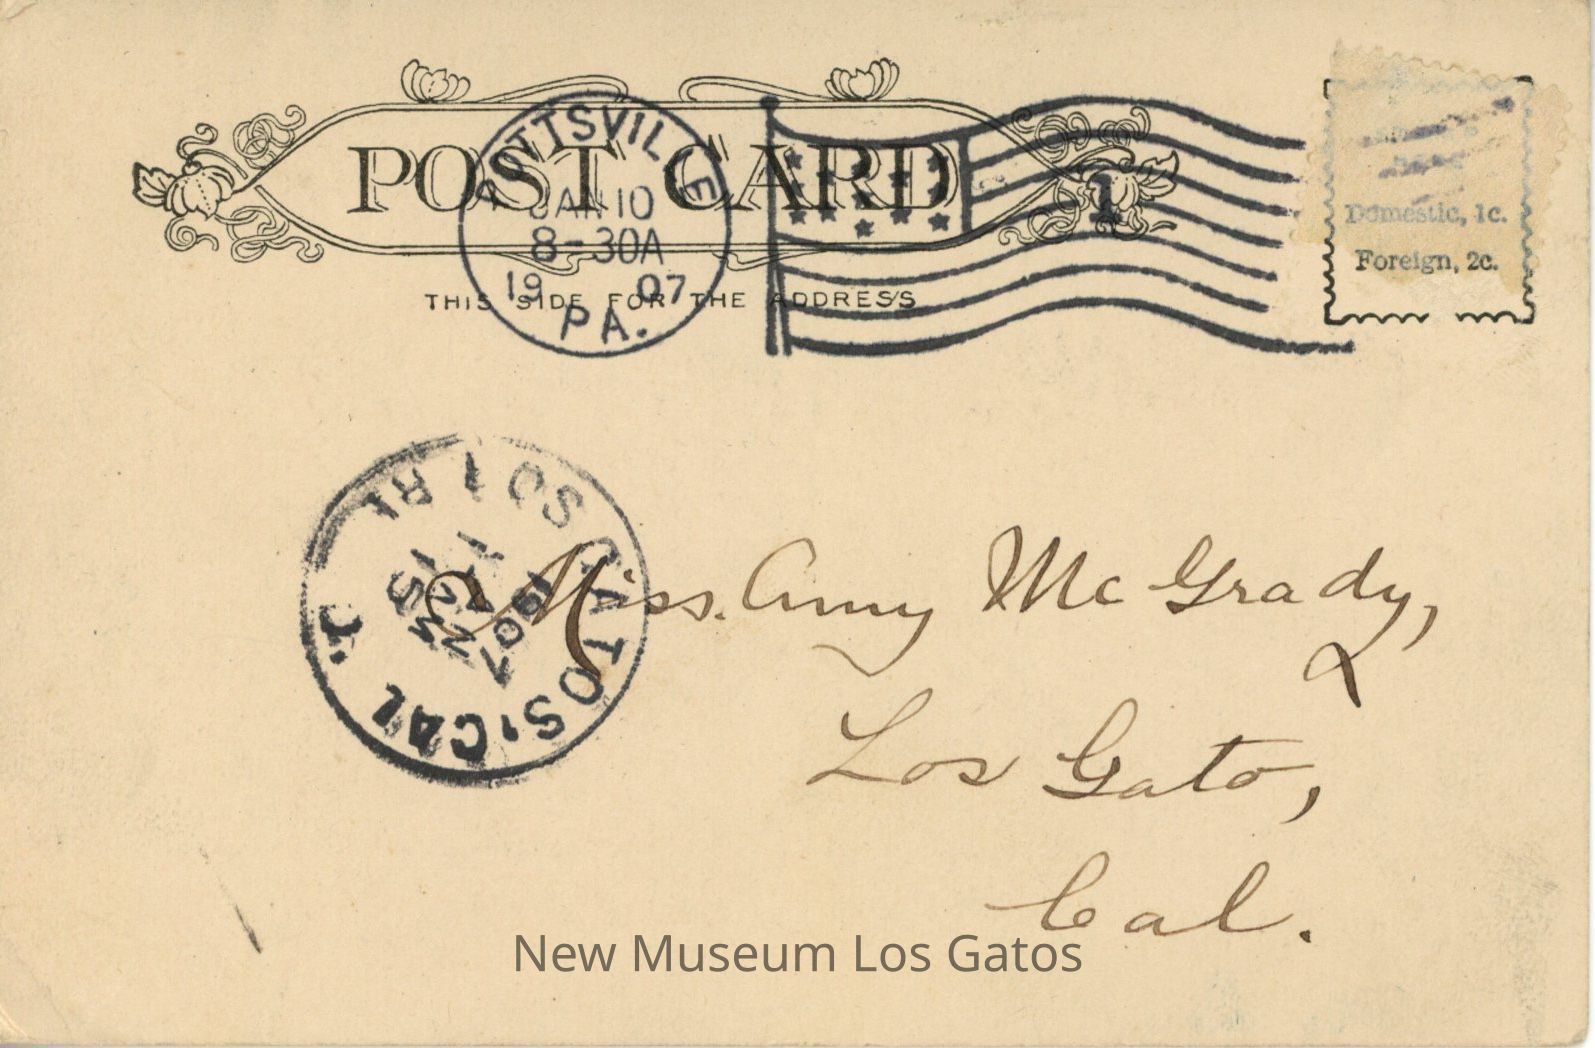 POST CARD
POTTSVILLE
JAN 10
8-30A
19 07
PA.
1
THIS SIDE FOR THE ADDRESS
Domestic, 1c.
Foreign, 2c.
LOS GATOS, CAL.
1907
Miss. Amy McGrady,
Los Gato,
Cal.
New Museum Los Gatos